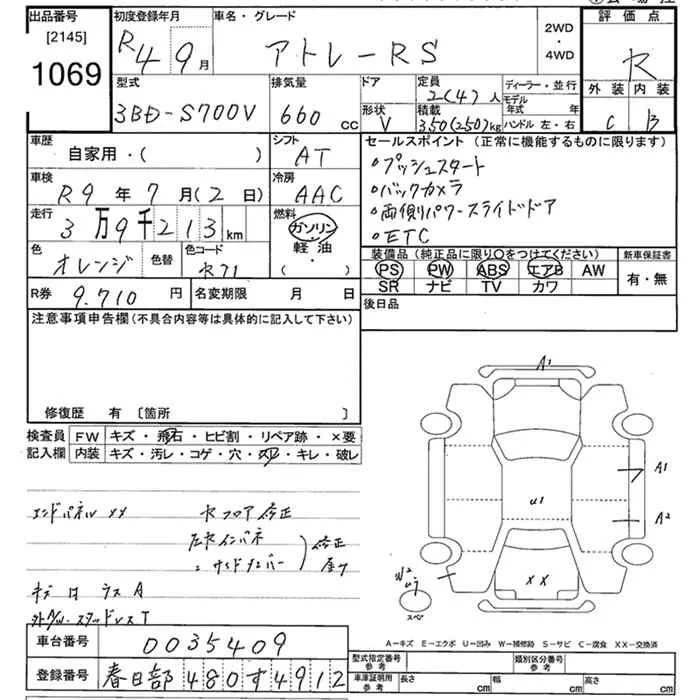 出品番号
[2145]
1069
初度登録年月
R4 9月
車名・グレード
アトレーRS
2WD
・
4WD
評価点
R
外装 内装
C B
型式
3BD-S700V
排気量
660 cc
ドア
形状
V
定員
2(4)人
積載
350(250)kg
ディーラー・並行
モデル
年式 年
ハンドル 左・右
車歴
自家用・( )
シフト
AT
車検
R9年7月(2日)
冷房
AAC
走行
3万9千213km
燃料
ガソリン
軽油
( ・ )
色
オレンジ
色替
色コード
R71
R券
9.710円
名変期限 月 日
セールスポイント(正常に機能するものに限ります)
・プッシュスタート
・バックカメラ
・両側パワースライドドア
・ETC
装備品(純正品に限り〇をつけてください)
PS PW ABS エアB AW
SR ナビ TV カワ
新車保証書
有・無
後日品
注意事項申告欄(不具合内容等は具体的に記入して下さい)
修復歴 有 〔箇所 〕
検査員
記入欄
FW キズ・飛石・ヒビ割・リペア跡・×要
内装 キズ・汚レ・コゲ・穴・スレ・キレ・破レ
エンドパネルXX
Rフロア修正
左Rインパネ
〃サイドメンバー
修正
A1
A1
A2
u1
XX
W2
スペア
A-キズ E-エクボ U-凹み W-補修跡 S-サビ C-腐食 XX-交換済
車台番号
0035409
登録番号
春日部480す4912
型式指定番号
参考
類別区分番号
参考
車庫証明用
参考
長さ cm
幅 cm
高さ cm